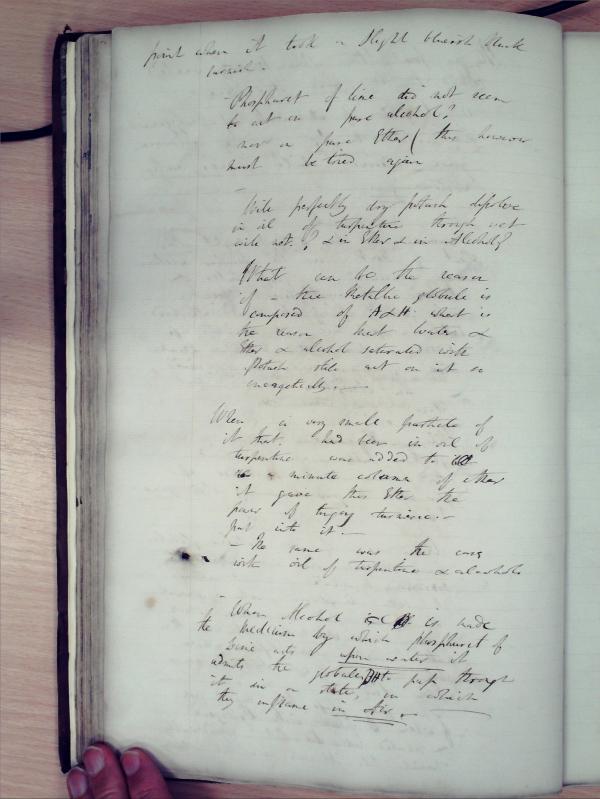 point when it took a slight blueish black
tarnish.
Phosphuret of lime did not seem
to act on pure alcohol?
nor on pure Ether (this however
must be tried again
Will perfectly dry potash dissolve
in oil of turpentine though wet
will not.? & in Ether & in Alcohol?
What can be the reason
if - this metallic globule is
composed of & H what is
the reason that water &
Ether & alcohol saturated with
Potash still act on it so
energetically.
When a very small particle of
it that had been in oil of
turpentine was added to
a minute column of ether
it gave this Ether the
power of tinging turmeric -
put into it -
- The same was the case
with oil of turpentine & alcohols
When Alcohol is made
the medium by which phosphuret of
lime acts upon water it
admits the globules to pass through
it in a state, in which
they inflame in Air.